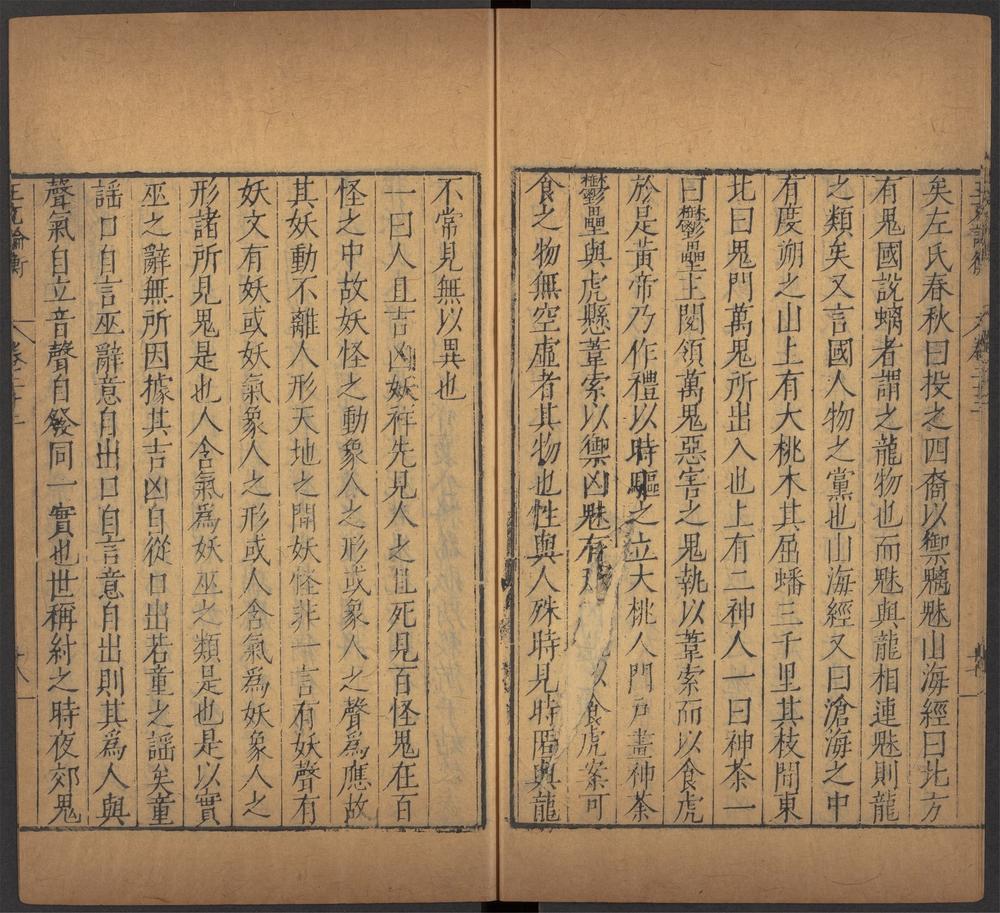 矣左氏春秋曰投之四裔以禦魑魅山海經曰北方
有鬼國說螭者謂之龍物也而魅與龍相連魅則龍
之類矣又言國人物之黨也山海經又曰滄海之中
有度朔之山上有大桃木其屈蟠三千里其枝間東
北曰鬼門萬鬼所出入也上有二神人一曰神荼一
曰鬱壘主閱領萬鬼惡害之鬼執以葦索而以食虎
於是黃帝乃作禮以時驅之立大桃人門戶畫神荼
鬱壘與虎懸葦索以禦凶魅有形故以食虎案可
食之物無空虛者其物也性與人殊時見時匿與龍
不常見無以異也
一曰人且吉凶妖祥先見人之且死見百怪鬼在百
怪之中故妖怪之動象人之形或象人之聲為應故
其妖動不離人形天地之間妖怪非一言有妖聲有
妖文有妖或妖氣象人之形或人含氣為妖象人之
形諸所見鬼是也人含氣為妖巫之類是也是以實
巫之辭無所因據其吉凶自從口出若童之謡矣童
謡口自言巫辭意自出口自言意自出則其為人與
聲氣自立音聲自發同一實也世稱紂之時夜郊鬼
王充論衡 卷二十二